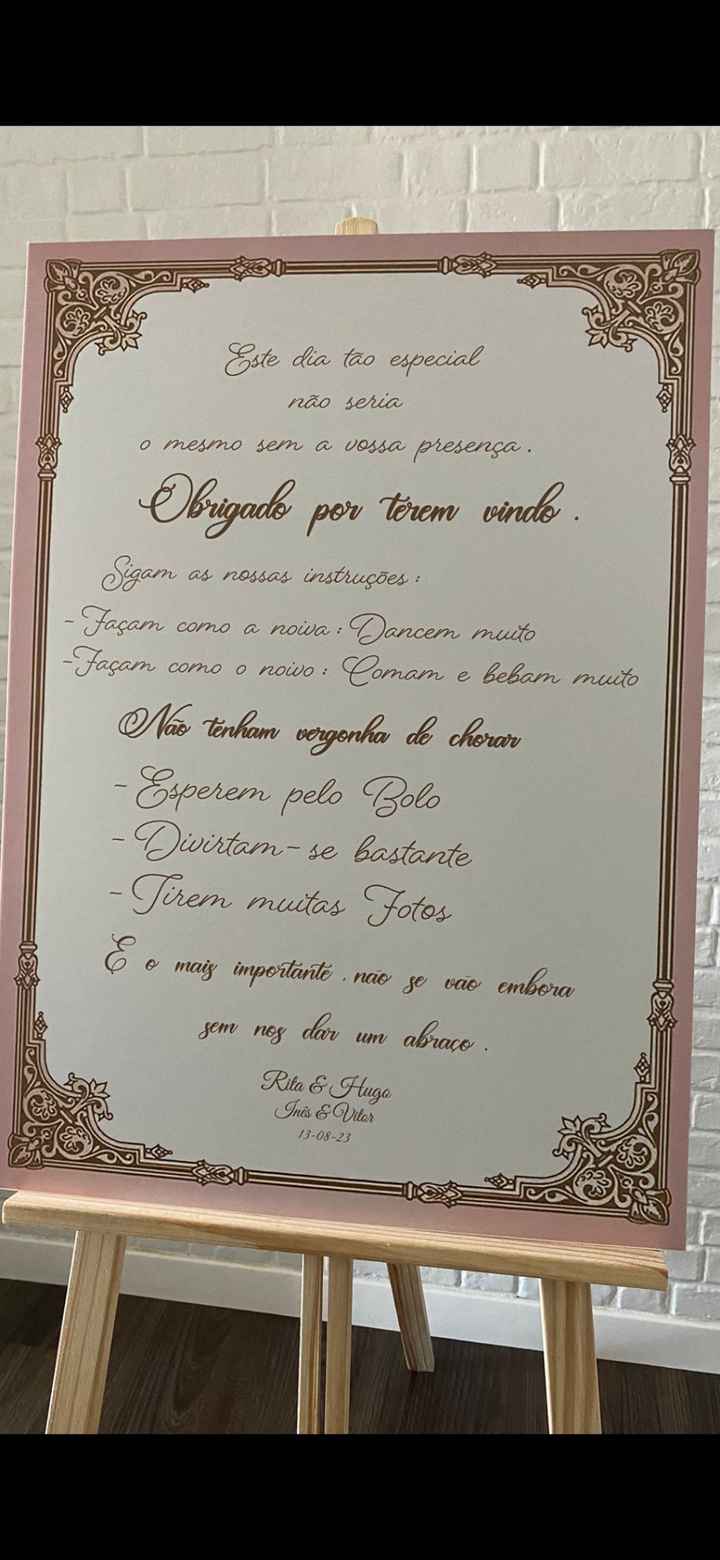 Este dia tão especial
não seria
o mesmo sem a vossa presença.
Obrigado por terem vindo.
Sigam as nossas instruções:
-Façam como a noiva: Dancem muito
-Façam como o noivo: Comam e bebam muito
Não tenham vergonha de chorar
- Esperem pelo Bolo
- Divirtam-se bastante
- Tirem muitas Fotos
E o mais importante. não se vão embora
sem nos dar um abraço.
Rita & Hugo
Inês & Vitor
13-08-23